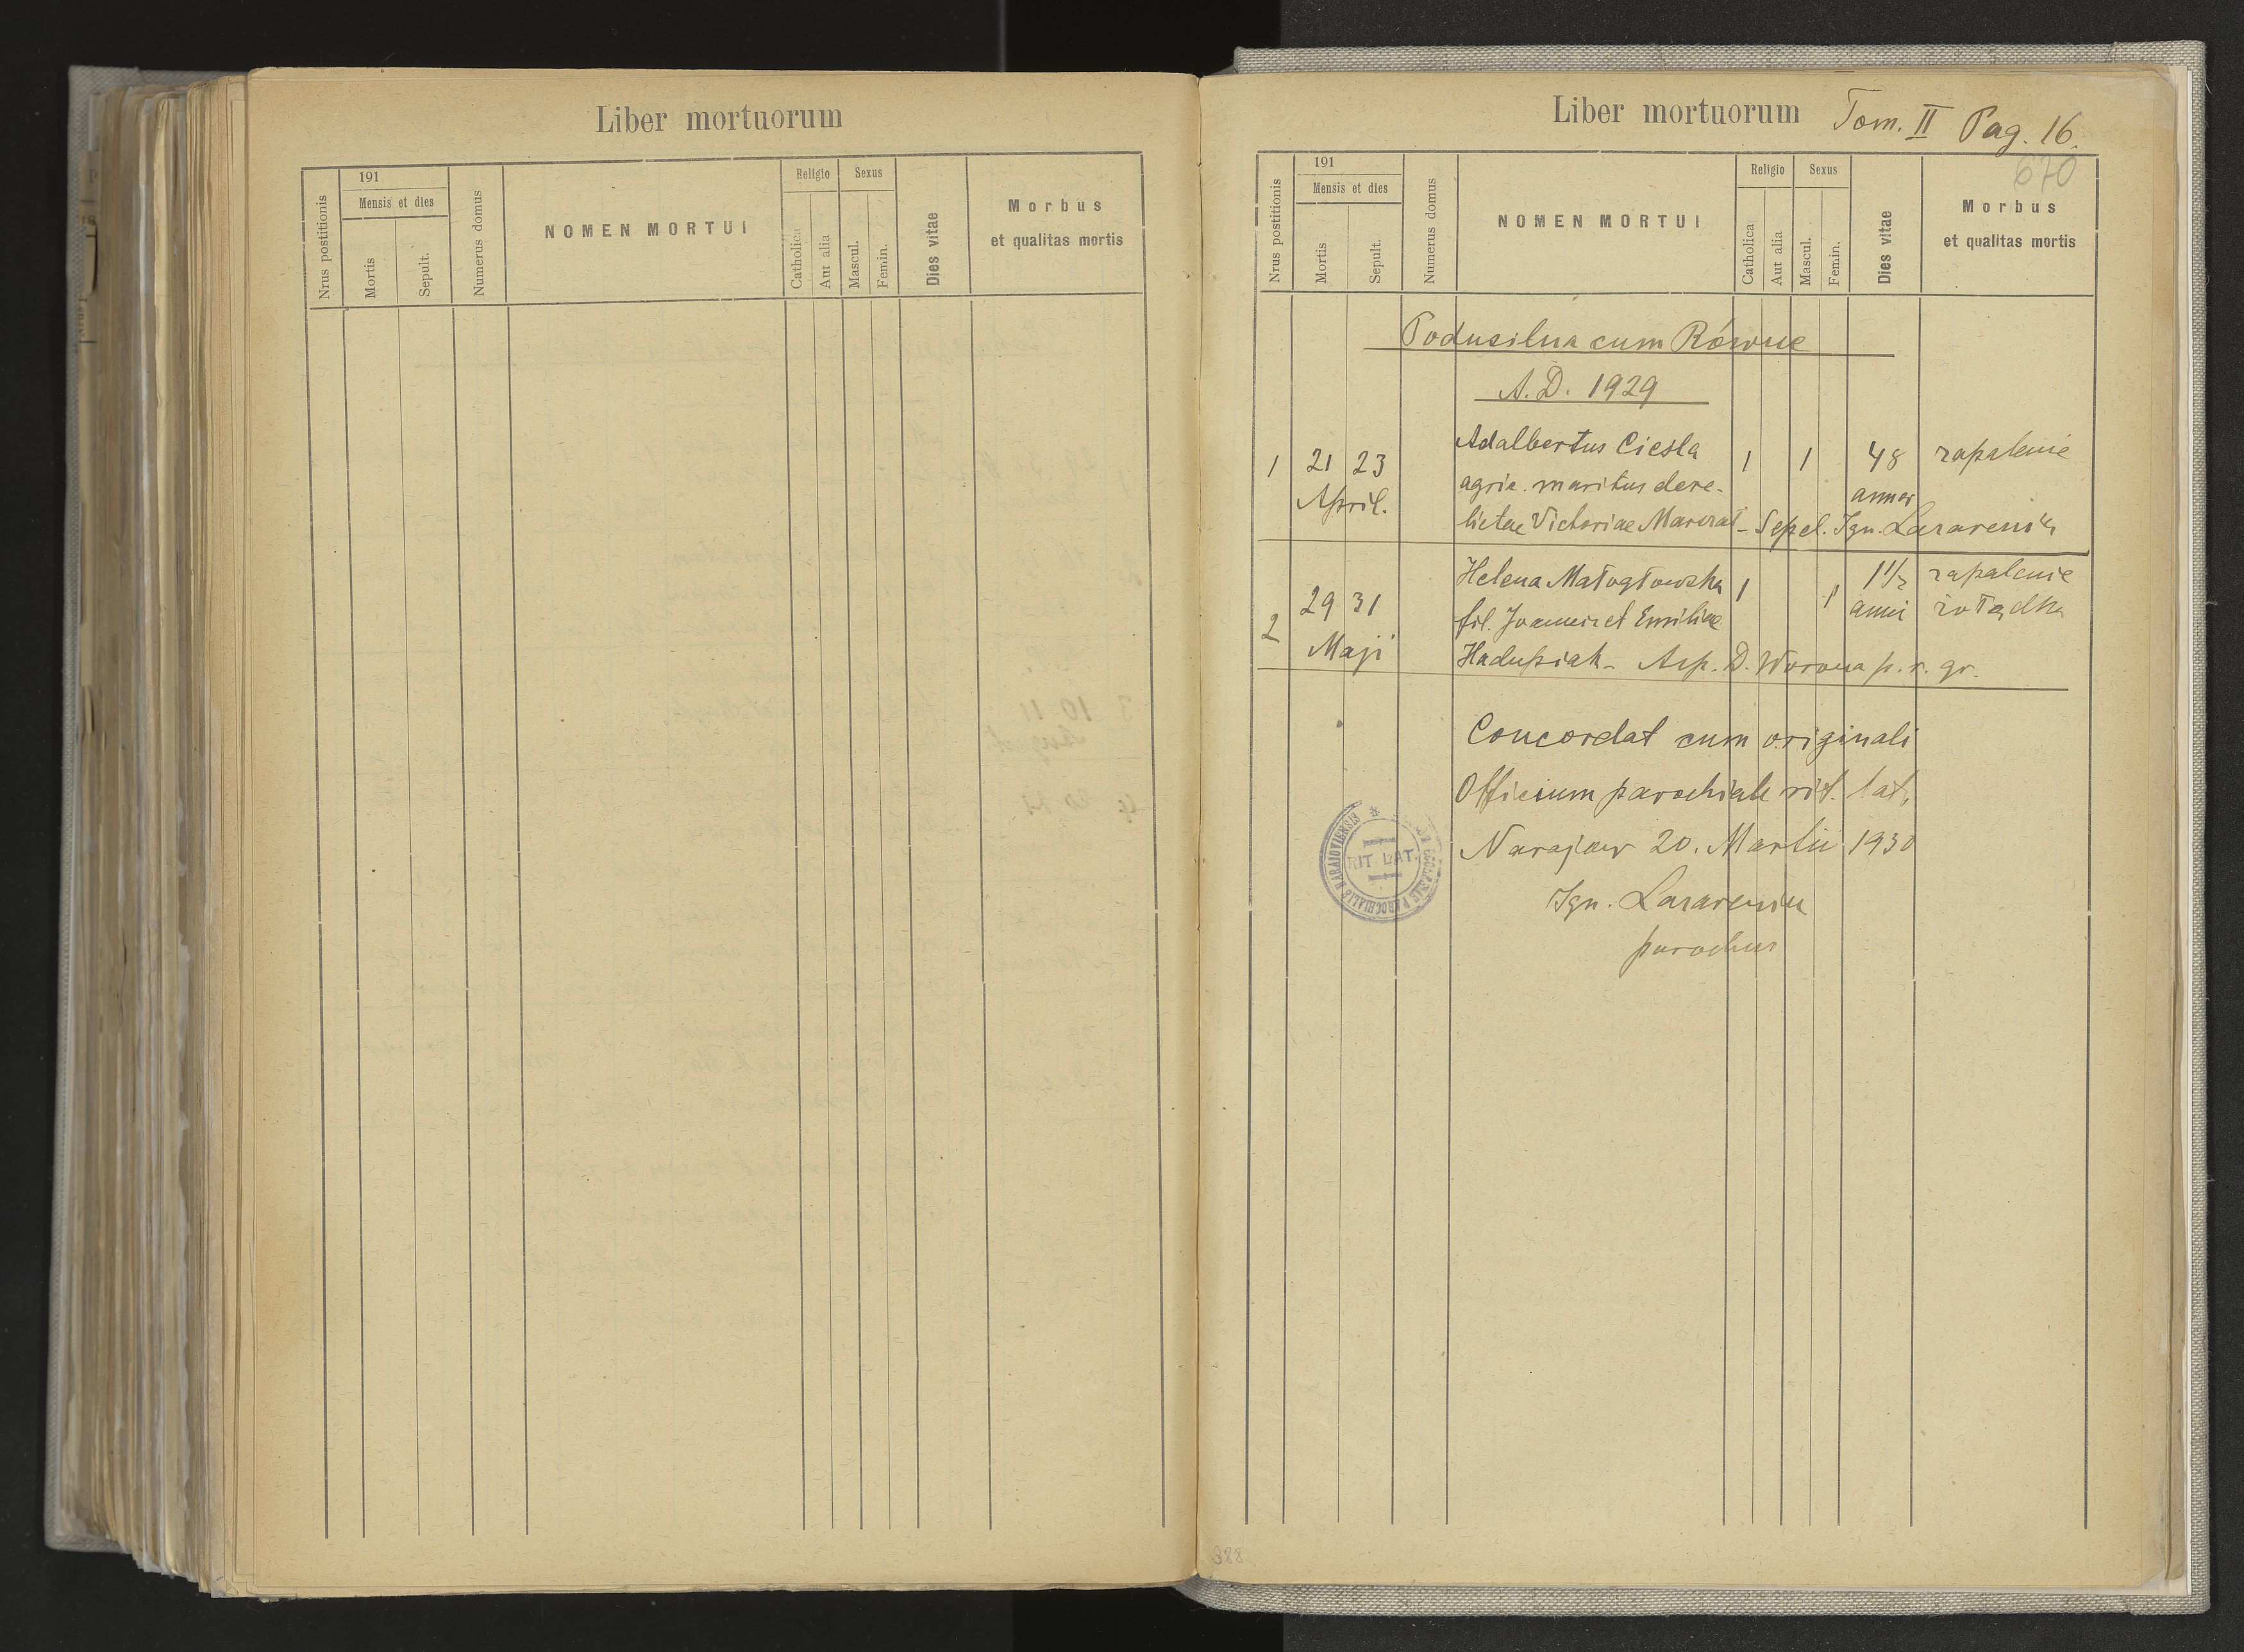 Liber mortuorum
Nrus postitionis
191
Mensis et dies
Mortis
Sepult.
Numerus domus
NOMEN MORTUI
Religio
Catholica
Aut alia
Sexus
Mascul.
Femin.
Dies vitae
Morbus
et qualitas mortis
Liber mortuorum Tom. II Pag. 16.
670
Nrus postitionis
191
Mensis et dies
Mortis
Sepult.
Numerus domus
NOMEN MORTUI
Religio
Catholica
Aut alia
Sexus
Mascul.
Femin.
Dies vitae
Morbus
et qualitas mortis
Podusilna cum Równe
A.D. 1929
1 21 23 Adalbertus Cieśla 1 1 48 zapalenie
April. agric. maritus dere- annor
lictae Victoriae - Sepel. Ign.
2 29 31 Helena Małogłowska 1 1 1 1/2 zapalenie
Maji fil. Joannis et Emiliae anni żołądka
Hadupiak - Asp. D. Worona p. r. gr.
Concordat cum originali
Officium parochiale rit. lat.
Narajow 20. Martii 1930
Ign.
parochus
RIT. LAT.
388